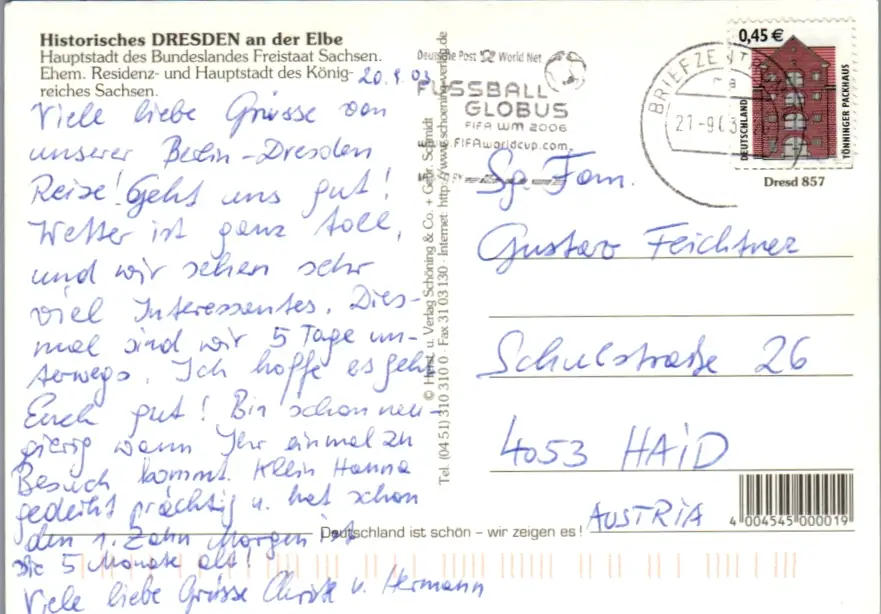 Historisches DRESDEN an der Elbe
Hauptstadt des Bundeslandes Freistaat Sachsen.
Ehem. Residenz- und Hauptstadt des König-
reiches Sachsen.
20.9.03
Viele liebe Grüsse von
unserer Berlin-Dresden
Reise! Geht uns gut!
Wetter ist ganz toll,
und wir sehen sehr
viel Interessantes. Dies-
mal sind wir 5 Tage un-
terwegs. Ich hoffe es geht
Euch gut! Bin schon neu-
gierig wann Ihr einmal zu
Besuch kommt. Klein Hanna
gedeiht prächtig u. hat schon
den 1. Zahn Morgen ist
sie 5 Monate alt!
Viele liebe Grüsse Christl u. Hermann
© Horst. u. Verlag Schöning & Co. + Gebr. Schmidt
Tel. (04 51) 310 310 0 · Fax 31 03 130 · Internet: http://www.schoening-verlag.de
Deutsche Post World Net
FUSSBALL
GLOBUS
FIFA WM 2006
www.FIFAworldcup.com
BRIEFZENTRUM
21-9.03
0,45 €
DEUTSCHLAND
TÖNNINGER PACKHAUS
Dresd 857
Sg. Fam.
Gustav Feichtner
Schulstraße 26
4053 HAID
AUSTRIA
4 004545 000019
Deutschland ist schön – wir zeigen es!